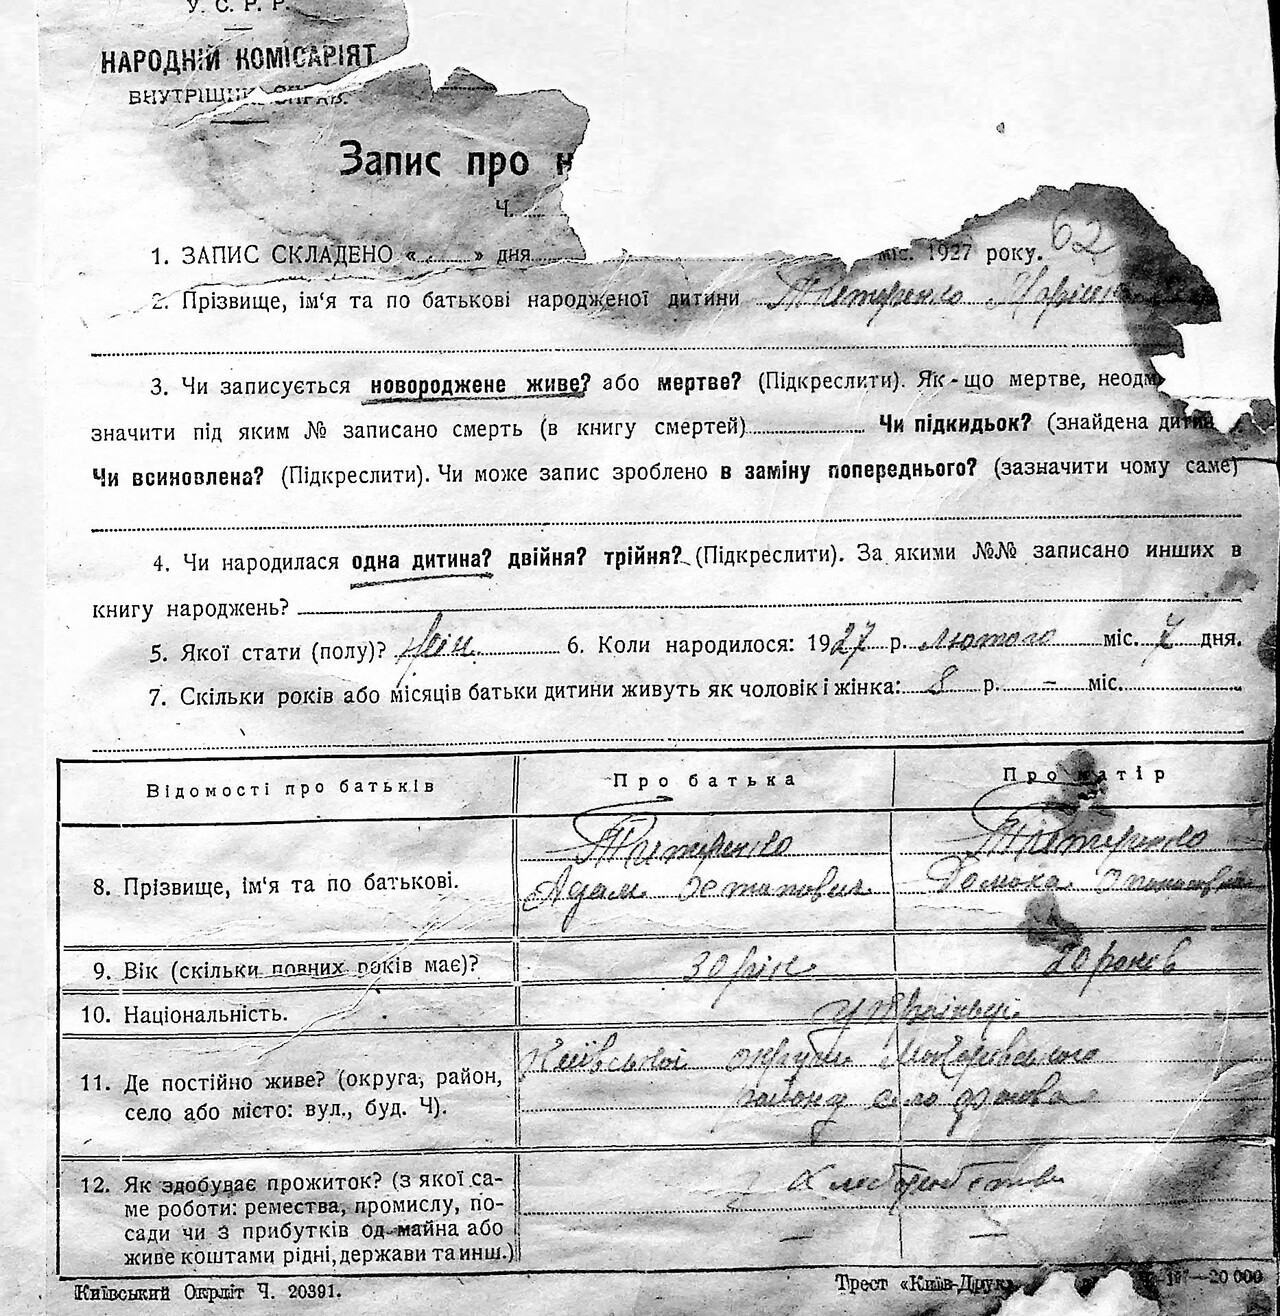 У. С. Р. Р.
НАРОДНІЙ КОМІСАРІЯТ
ВНУТРІШНІХ СПРАВ.
Запис про н
Ч.
1. ЗАПИС СКЛАДЕНО « » дня міс. 1927 року. 62
2. Прізвище, ім'я та по батькові народженої дитини Титеренко
3. Чи записується новороджене живе? або мертве? (Підкреслити). Як-що мертве, неодм
значити під яким № записано смерть (в книгу смертей) Чи підкидьок? (знайдена дитин
Чи всиновлена? (Підкреслити). Чи може запис зроблено в заміну попереднього? (зазначити чому саме)
4. Чи народилася одна дитина? двійня? трійня? (Підкреслити). За якими №№ записано инших в
книгу народжень?
5. Якої стати (полу)? жін. 6. Коли народилося: 1927 р. лютого міс. 7 дня.
7. Скільки років або місяців батьки дитини живуть як чоловік і жінка: 8 р. – міс.
Відомості про батьків
Про батька
Про матір
8. Прізвище, ім'я та по батькові.
Титеренко
Адам Остапович
Титеренко
Домаха
9. Вік (скільки повних років має)?
30 рік
років
10. Національність.
Українці
11. Де постійно живе? (округа, район,
село або місто: вул., буд. Ч).
Київської округи Макарівського
району село
12. Як здобуває прожиток? (з якої са-
ме роботи: ремества, промислу, по-
сади чи з прибутків од майна або
живе коштами рідні, держави та инш.)
з хліборобства
— —
Київський Окрліт Ч. 20391.
Трест «Київ-Друк» —20 000